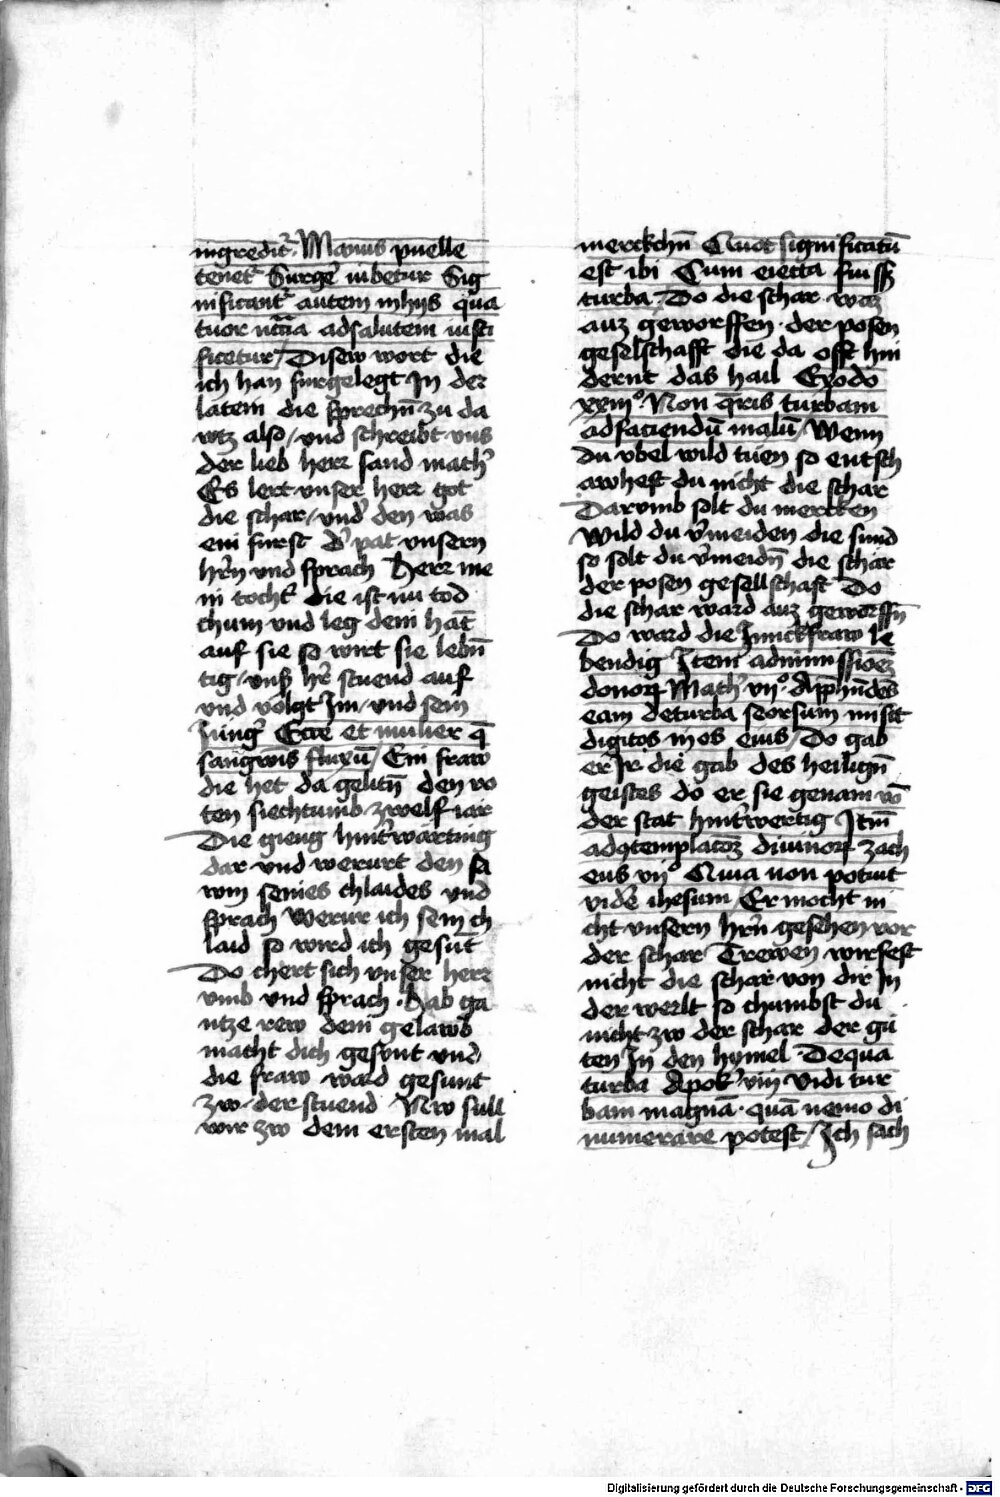 ingredit᷑. Manus puelle
tenet᷑ Surge᷑ iubetur Sig
nificant᷑ autem inhijs qua
tuor adsalutem iusti
ficetur / Disew wort die
ich han furgelegt In der
latein die sprechn̄ zu da
wtz also / vnd schreibt vns
der lieb herr sand math᷑
Es lert vnser herr got
die schar / vnd den was
ein furst D᷑ pat vnsern
hr̄n vnd sprach Herr me
in tocht᷑ die ist nu tod
chum vnd leg dein hāt
auf sie so wirt sie lebn̄
tig / vnß hr̄ stuend auf
vnd volgt Im / vnd sein
Jung᷑ Ecce et mulier q̄
sangwis fluxū / Ein fraw
die het da gelitn̄ den ro
ten siechtumb zwelf iar
Die gieng hint᷑wartig
dar vnd werurt den sa
wm seines chlaides vnd
sprach Werur ich sein ch
laid so wird ich gesūt
Do chert sich vnser herr
vmb vnd sprach . Hab ga
ntze rew dein gelawb
macht dich gesunt vnd
die fraw ward gesunt
zw der stuend Nw sull
wir zw dem ersten mal
merckchn̄ Quot significatū
est ibi Cum eiecta fuiss
turba / Do die schar waz
auz geworffen . der posen
geselschafft die da offt hin
dernt das hail Exodo
xxiijº . Non q̄ris turbam
adfaciendū malū / Wenn
du vbel wild tuen so entsch
awhest du nicht die schar
Darumb solt du mercken
Wild du v᷑meiden die sund
so solt du v᷑meidn̄ die schar
der posen gesellschaft Do
die schar ward auz geworffn̄
Do ward die Junckfraw le
bendig Item adminissioez
donorꝝ Math᷑ vijº . App͞hndēs
eam deturba seorsum misit
digitos in os eius / Do gab
er Ir die gab des heilign̄
geistes do er sie genam vō
der stat hint᷑wertig Itm̄
ad9templacōz diuinorꝝ Zach
eus vijº Quia non potuit
vide᷑ ihesum / Er mocht ni
cht vnsern hr̄n gesehen vor
der schar Trewen wirfest
nicht die schar von dir In
der werlt so chumbst du
nicht zw der schar der gu
ten In den hymel . Dequa
turba Apok᷑ viij Vidi tur
bam magnā . quā nemo di
numerare potest / Ich sach
Digitalisierung gefördert durch die Deutsche Forschungsgemeinschaft - DFG